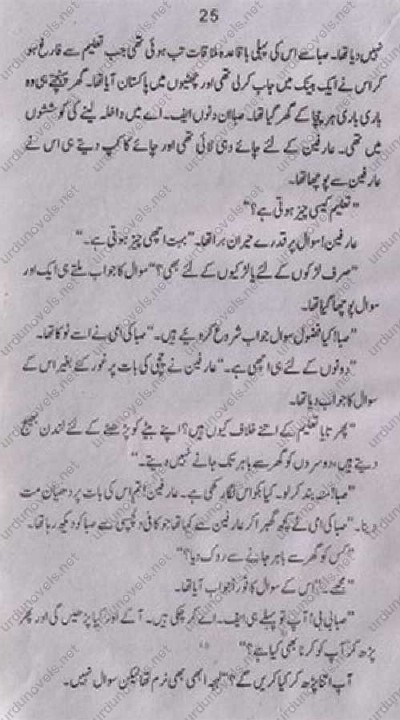 25
نہیں دیا تھا۔ صبا سے اس کی پہلی باقاعدہ ملاقات تب ہوئی تھی جب تعلیم سے فارغ ہو
کر اس نے ایک بینک میں جاب کر لی تھی اور چھٹیوں میں پاکستان آیا تھا۔ گھر پہنچتے ہی وہ
باری باری ہر چچا کے گھر گیا تھا۔ صبا ان دنوں ایف۔ اے میں داخلہ لینے کی کوششوں
میں تھی۔ عارفین کے لئے چائے وہی لائی تھی اور چائے کا کپ دیتے ہی اس نے
عارفین سے پوچھا تھا۔
”تعلیم کیسی چیز ہوتی ہے؟“
عارفین! سوال پر قدرے حیران ہوا تھا۔ ”بہت اچھی چیز ہوتی ہے۔“
”صرف لڑکوں کے لئے یا لڑکیوں کے لئے بھی؟“ سوال کا جواب ملتے ہی ایک اور
سوال پوچھا گیا تھا۔
”صبا! کیا فضول سوال جواب شروع کر دیئے ہیں۔“ صبا کی امی نے اسے ٹوکا تھا۔
”دونوں کے لئے ہی اچھی ہے۔“ عارفین نے چچی کی بات پر غور کئے بغیر اس کے
سوال کا جواب دیا تھا۔
”پھر تایا تعلیم کے اتنے خلاف کیوں ہیں؟ اپنے بیٹے کو پڑھنے کے لئے لندن بھیج
دیتے ہیں، دوسروں کو گھر سے باہر تک جانے نہیں دیتے۔“
”صبا! منہ بند کر لو۔ کیا بکواس لگا رکھی ہے۔ عارفین! تم اس کی بات پر دھیان مت
دینا۔“ صبا کی امی نے کچھ گھبرا کر عارفین سے کہا تھا جو کافی دلچسپی سے صبا کو دیکھ رہا تھا۔
”کس کو گھر سے باہر جانے سے روک دیا؟“
”مجھے۔“ اس کے سوال کا فوراً جواب آیا تھا۔
”صبا بی بی! آپ تو پہلے ہی ایف۔ اے کر چکی ہیں۔ آگے اور کیا پڑھیں گی اور پھر
پڑھ کر آپ کو کرنا بھی کیا ہے؟“
آپ اتنا پڑھ کر کیا کریں گے؟“ لہجہ ابھی بھی نرم تھا لیکن سوال نہیں۔
urdunovels.net